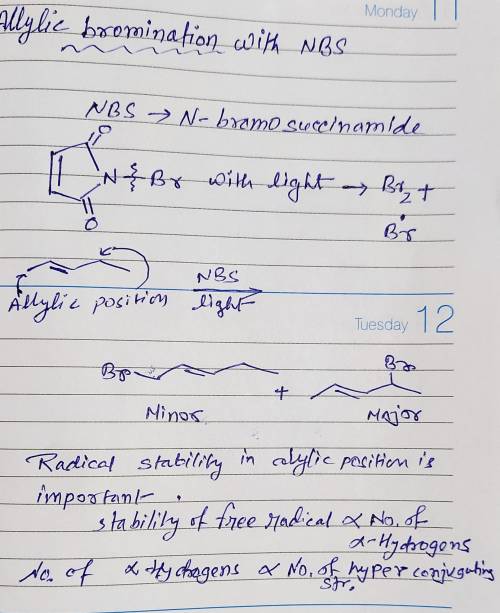 Monday 11
Allylic bromination with NBS
NBS → N-bromosuccinamide
O
N Br with light → Br2 +
O
Br
NBS
Allylic position light
Tuesday 12
Br
Br +
Minor Major
Radical stability in allylic position is
important.
stability of free radical ∝ No. of
α-Hydrogens
No. of α Hydrogens ∝ No. of hyperconjugating
str.